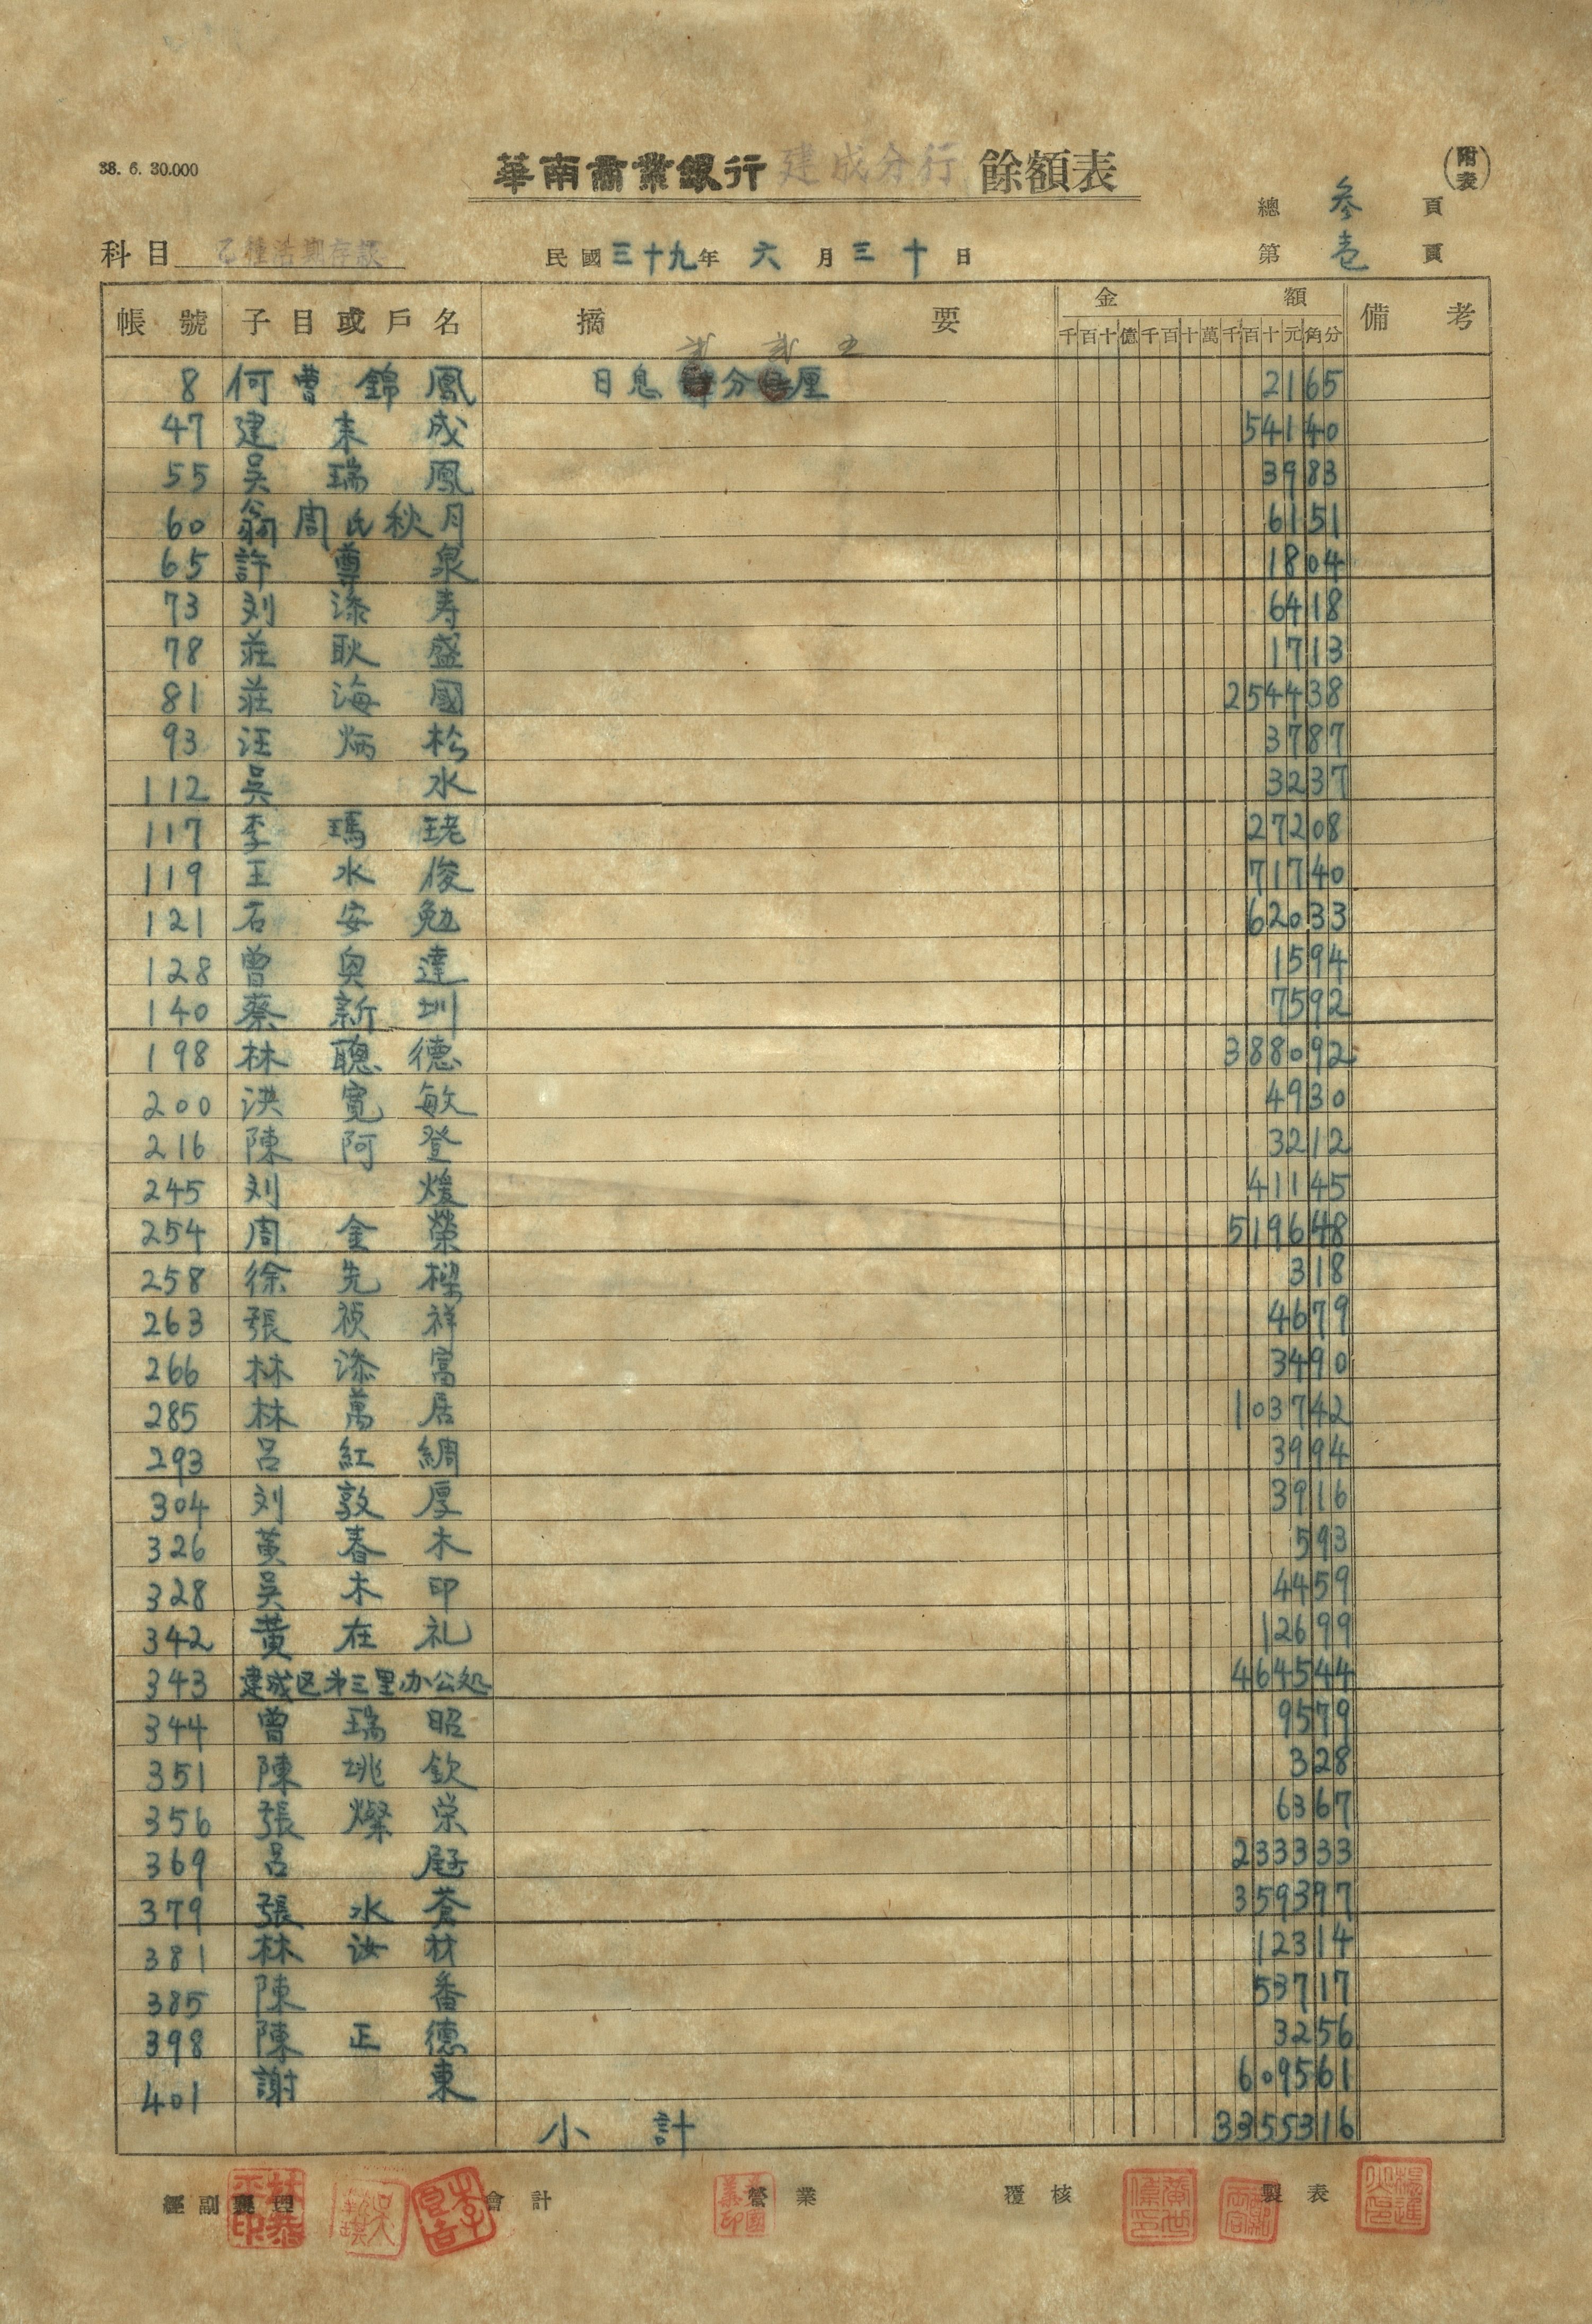 38. 6. 30.000
華南商業銀行 建成分行 餘額表
(附表)
總 参 頁
科目 乙種活期存款 民國三十九年 六 月 三十 日 第 壱 頁
帳號 子目或戶名 摘要 金額 備考
千百十億千百十萬千百十元角分
弍 弍 五
8 何曹錦鳳 日息 分 厘 2165
47 建末成 54140
55 吳瑞鳳 3983
60 翁周氏秋月 6151
65 許尊泉 1804
73 刘添寿 6418
78 莊耿盛 1713
81 莊海國 254438
93 汪炳松 3787
112 吳水 3237
117 李瑪珯 27208
119 王水俊 71740
121 石安勉 62033
128 曾奥達 1594
140 蔡新圳 7592
198 林聰德 388092
200 洪寬敏 4930
216 陳阿登 3212
245 刘煖 41145
254 周金榮 519648
258 徐先樑 318
263 張禎祥 4679
266 林添富 3490
285 林萬居 103742
293 呂紅綢 3994
304 刘敦厚 3916
326 黃春木 593
328 吳木印 4459
342 黃在礼 12699
343 建成区第三里办公処 464544
344 曾瑞昭 9579
351 陳垗欽 328
356 張燦栄 6367
369 呂 233333
379 張水蒼 359397
381 林汝材 12314
385 陳番 53717
398 陳正德 3256
401 謝東 609561
小計 3355316
經副襄理 會計 營業 覆核 製表